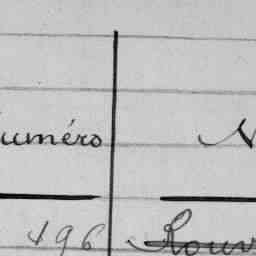 uméro N
496 Rouv